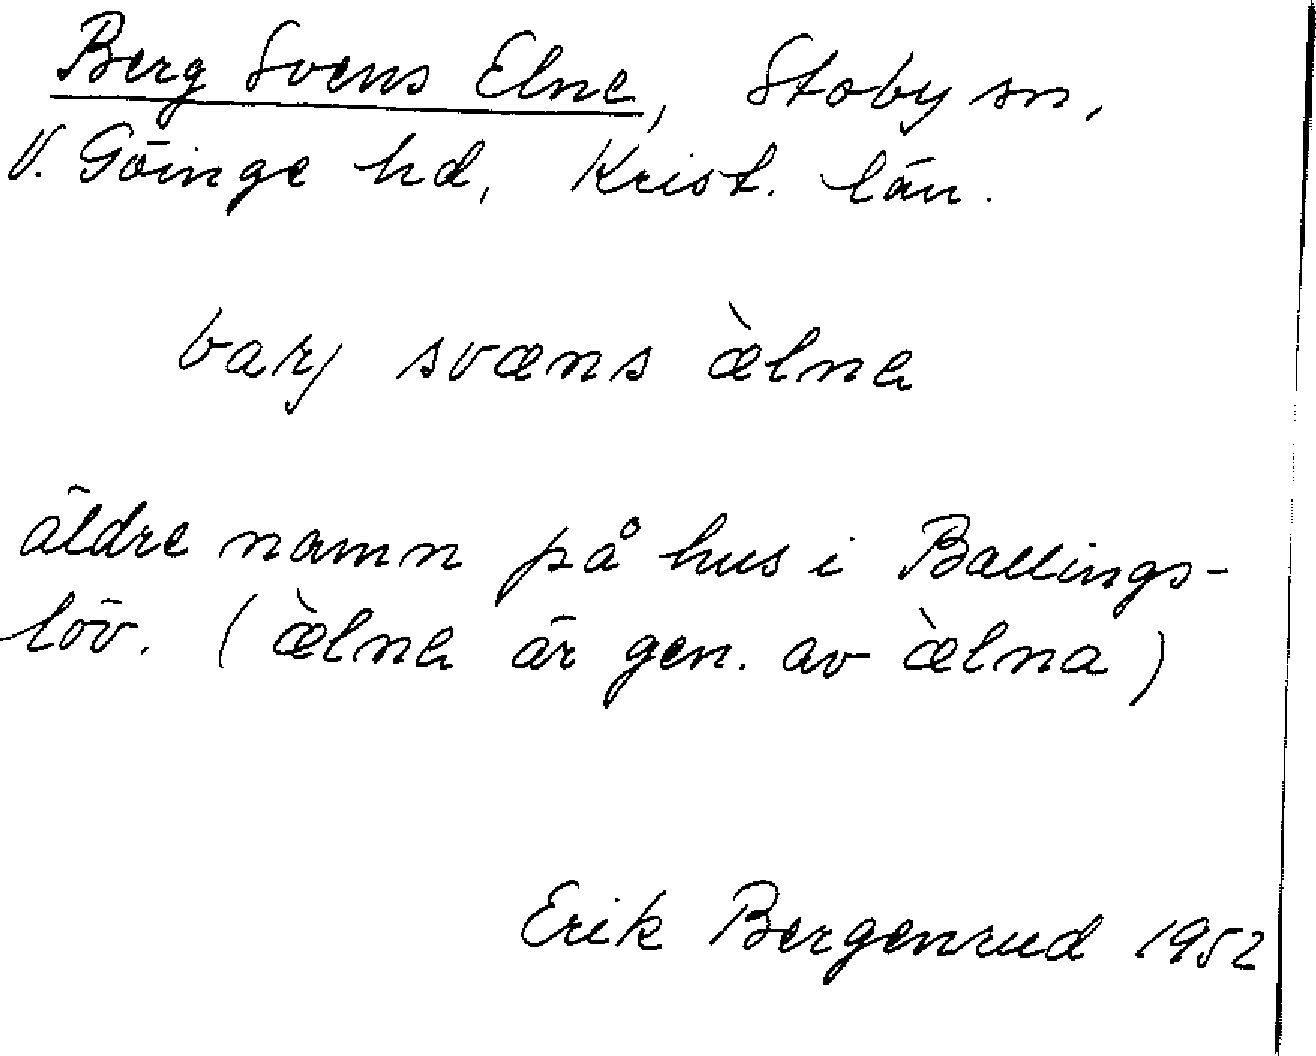 Berg Svens Elne, Stoby sn,
V. Göinge hd, Krist. län.
barj svæns æ̀lnə
äldre namn på hus i Ballings-
löv. (æ̀lnə är gen. av æ̀lna)
Erik Bergenrud 1952